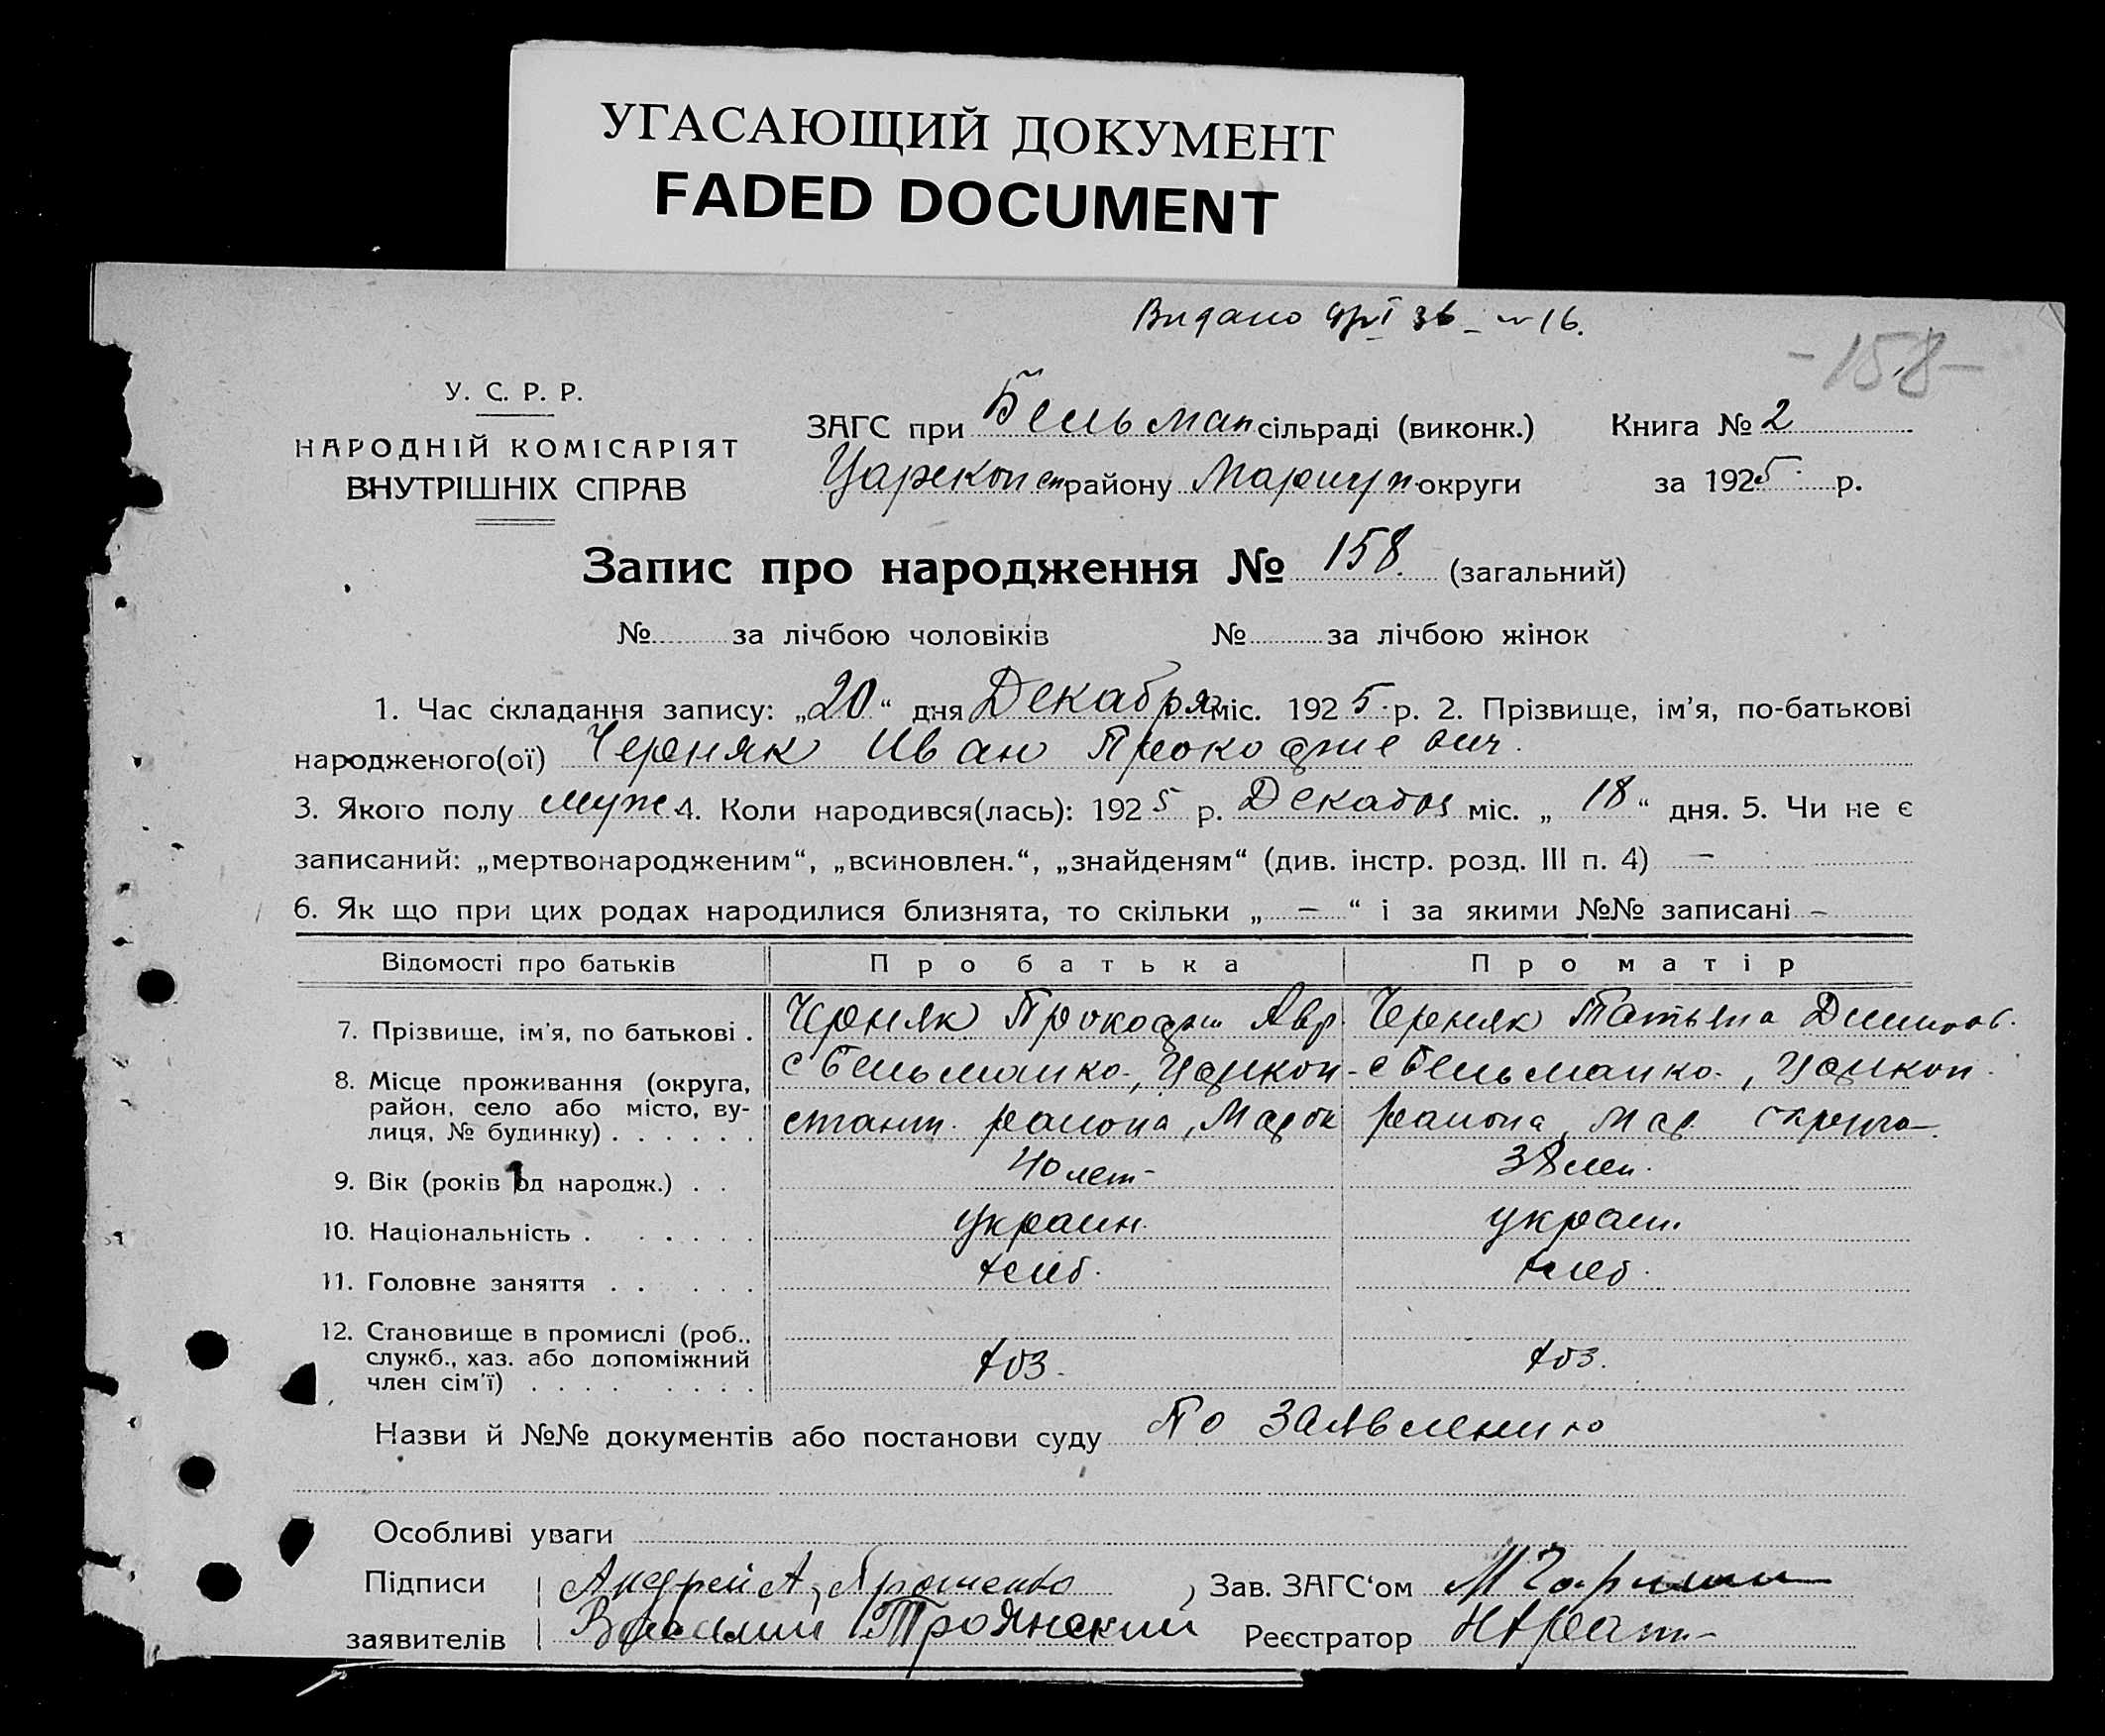 УГАСАЮЩИЙ ДОКУМЕНТ
FADED DOCUMENT
Видано 36 - 16.
-158-
У. С. Р. Р.
НАРОДНІЙ КОМІСАРІЯТ
ВНУТРІШНІХ СПРАВ
ЗАГС при Бельман сільраді (виконк.) Книга № 2
Царекон району Мариуп. округи за 1925 р.
Запис про народження № 158. (загальний)
№ за лічбою чоловіків № за лічбою жінок
1. Час складання запису: „20“ дня Декабря міс. 1925 р. 2. Прізвище, ім'я, по-батькові
народженого(ої) Черняк Иван Прокофиевич.
3. Якого полу муж 4. Коли народився(лась): 1925 р. Декабря міс. „18“ дня. 5. Чи не є
записаний: „мертвонародженим“, „всиновлен.“, „знайденям“ (див. інстр. розд. III п. 4) —
6. Як що при цих родах народилися близнята, то скільки „—“ і за якими №№ записані -
Відомості про батьків Про батька Про матір
7. Прізвище, ім'я, по батькові . Черняк Прокофи Авр. Черняк Татьяна Димитров.
8. Місце проживання (округа, район, село або місто, вулиця, № будинку) . . . . . . с Бельманко, Царекон- с Бельманко, Царекон.
стант. района, Мар ок района, Мар округа
9. Вік (років од народж.) . . 40 лет 38 лет.
10. Національність . . . . . . украин. украин.
11. Головне заняття . . . . . хлеб. хлеб.
12. Становище в промислі (роб., служб., хаз. або допоміжний член сім'ї) . . . . . . . . хоз. хоз.
Назви й №№ документів або постанови суду По заявлению
Особливі уваги
Підписи Андрей А Зав. ЗАГС‘ом М
заявителів Василий Троянский Реєстратор